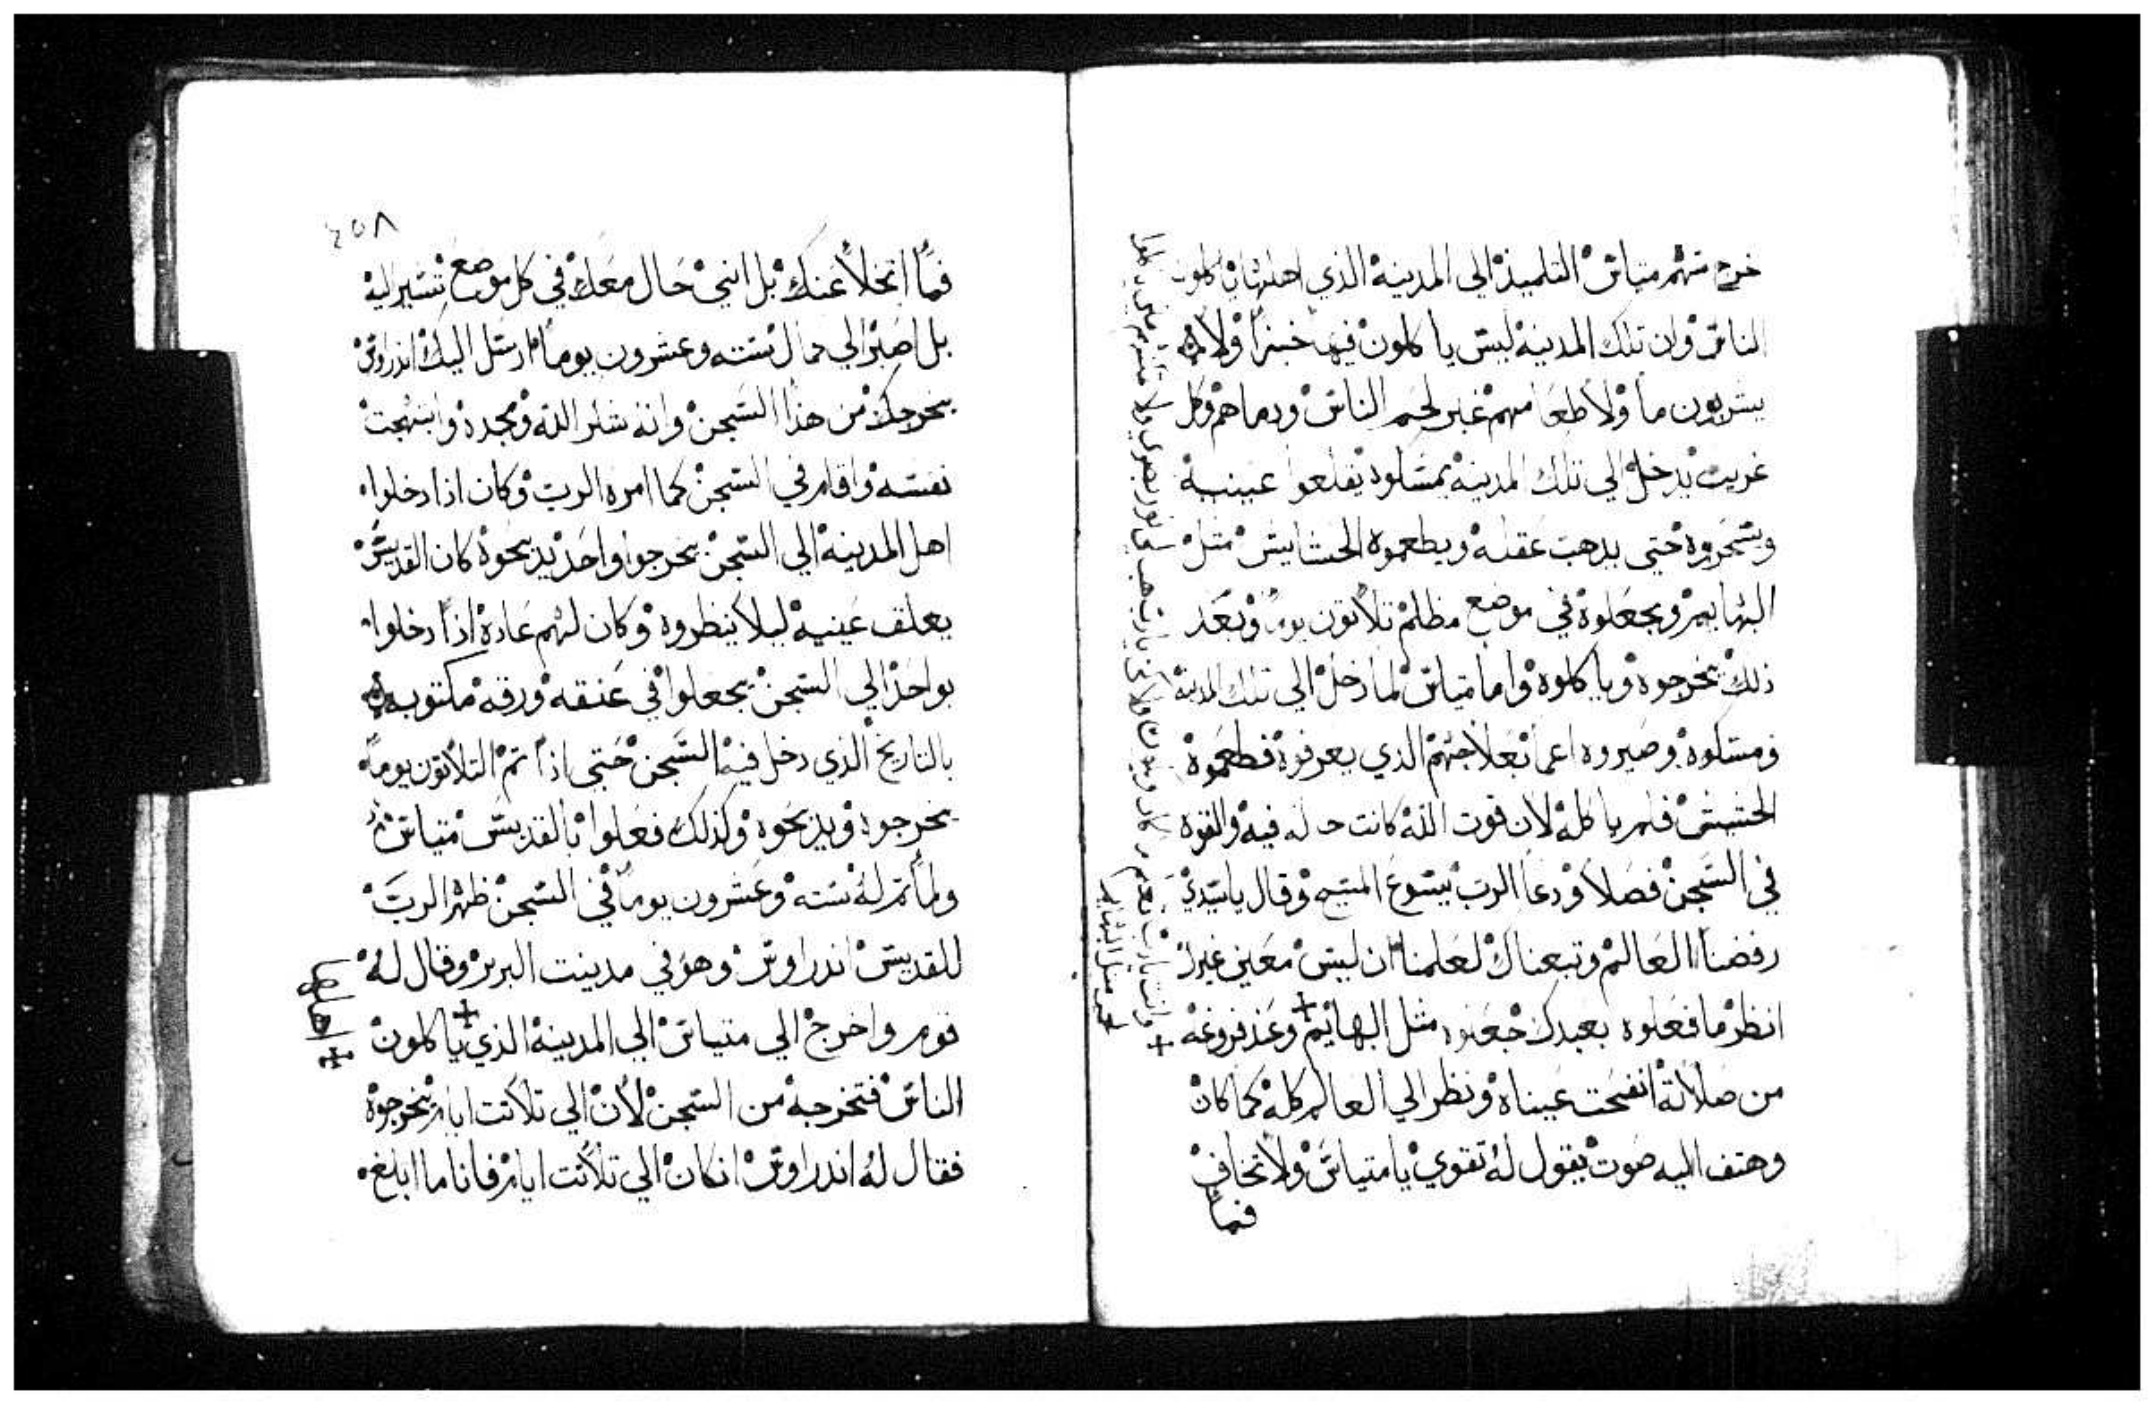 خرج سهم متياس التلميذ الي المدينه الذي اهلها ياكلون
الناس وان تلك المدينه ليس ياكلون فيها خبزا ولا
يشربون ما ولا طعامهم غير لحم الناس ودماهم وكل
غريب يدخل الي تلك المدينه يمسكوه يقلعوا عينيه
ويسحروه حتي يدهب عقله ويطعموه الحشايش متل
البهايم ويجعلوه في موضع مظلم تلاتون يوما وبعد
ذلك يخرجوه وياكلوه واما متياس لما دخل الي تلك المدينه
ومسكوه وصيروه اعما بعلاجهم الذي يعرفوه فطعموه
الحشيش فلم ياكله لان قوت الله كانت حاله فيه والقوه
في السجن فصلا ودعا الرب يسوع المسيح وقال ياسيدي
رفضنا العالم وتبعناك لعلمنا ان ليس معين غيرك
انظر ما فعلوه بعبدك جعلوه مثل البهائيم وعند فروغه
من صلاته انفتحت عيناه ونظر الي العالم كله كما كان
وهتف اليه صوت يقول له تقوي يا متياس ولا تخاف
فما
يارب هب لي نور بصري ولا
وانت يارب تعلم
لحمي متل البهايم
٤٥٨
فما اتخلا عنك بل انني حال معك في كل موضع تسير اليه
بل اصبر الي كمال سته وعشرون يوما ارسل اليك اندراوس
يخرجك من هذا السجن وانه شكر الله ومجده وابتهجت
نفسه واقام في السجن كما امره الرب وكان اذا دخلوا
اهل المدينه الي السجن يخرجوا واحد يذبحوه كان القديس
يعلق عينيه ليلا ينظروه وكان لهم عاده اذا دخلوا
بواحد الي السجن يجعلوا في عنقه ورقه مكتوبه
بالتاريخ الذي دخل فيه السجن حتي اذا تم التلاتون يوما
يخرجوه ويذبحوه وكذلك فعلوا بالقديس متياس
ولما تم له سته وعشرون يوما في السجن ظهر الرب
للقديس اندراوس وهو في مدينت البربر وقال له
قوم واخرج الي متياس الي المدينه الذي ياكلون
الناس فتخرجه من السجن لان الي تلاتت ايام يخرجوه
فقال له اندراوس انكان الي تلاتت ايام فانا ما ابلغ
اهلها